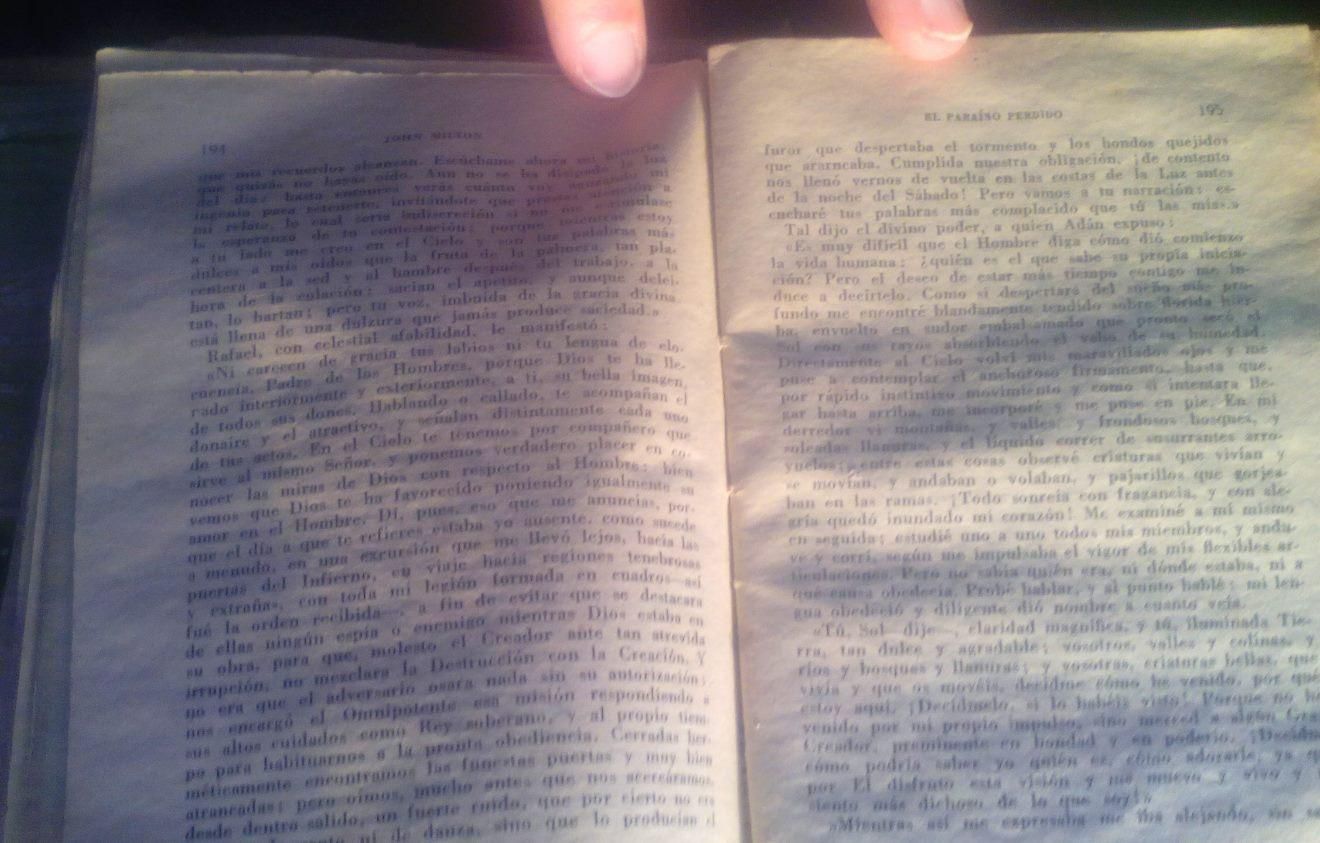 194
JOHN MILTON
que mis recuerdos alcanzan. Escúchame ahora mi historia,
que quizás no hayas oído. Aun no se ha disipado la luz
del día; hasta entonces verás cuánto voy aguzando mi
ingenio para retenerte, invitándote que prestes atención a
mi relato, lo cual sería indiscreción si no me estimulase
la esperanza de tu contestación; porque mientras estoy
a tu lado me creo en el Cielo y son tus palabras más
dulces a mis oídos que la fruta de la palmera, tan pla-
centera a la sed y al hambre después del trabajo, a la
hora de la colación; sacian el apetito, y aunque delei-
tan, lo hartan; pero tu voz, imbuída de la gracia divina,
está llena de una dulzura que jamás produce saciedad.»
Rafael, con celestial afabilidad, le manifestó:
«Ni carecen de gracia tus labios ni tu lengua de elo-
cuencia, Padre de los Hombres, porque Dios te ha lle-
rado interiormente y exteriormente, a ti, su bella imagen,
de todos sus dones. Hablando o callado, te acompañan el
donaire y el atractivo, y señalan distintamente cada uno
de tus actos. En el Cielo te tenemos por compañero que
sirve al mismo Señor, y ponemos verdadero placer en co-
nocer las miras de Dios con respecto al Hombre; bien
vemos que Dios te ha favorecido poniendo igualmente su
amor en el Hombre. Di, pues, eso que me anuncias, por-
que el día a que te refieres estaba yo ausente, como sucede
a menudo, en una excursión que me llevó lejos, hacia las
puertas del Infierno, en viaje hacia regiones tenebrosas
y extrañas, con toda mi legión formada en cuadros—así
fué la orden recibida—, a fin de evitar que se destacara
de ellas ningún espía o enemigo mientras Dios estaba en
su obra, para que, molesto el Creador ante tan atrevida
irrupción, no mezclara la Destrucción con la Creación. Y
no era que el adversario osara nada sin su autorización;
nos encargó el Omnipotente esa misión respondiendo a
sus altos cuidados como Rey soberano, y al propio tiem-
po para habituarnos a la pronta obediencia. Cerradas her-
méticamente encontramos las funestas puertas y muy bien
atrancadas; pero oímos, mucho antes que nos acercáramos,
desde dentro salido, un fuerte ruido, que por cierto no era
ni de danza, sino que lo producían el
EL PARAÍSO PERDIDO
195
furor que despertaba el tormento y los hondos quejidos
que arrancaba. Cumplida nuestra obligación, ¡de contento
nos llenó vernos de vuelta en las costas de la Luz antes
de la noche del Sábado! Pero vamos a tu narración; es-
cucharé tus palabras más complacido que tú las mías.»
Tal dijo el divino poder, a quien Adán expuso:
«Es muy difícil que el Hombre diga cómo dió comienzo
la vida humana: ¿quién es el que sabe su propia inicia-
ción? Pero el deseo de estar más tiempo contigo me in-
duce a decírtelo. Como si despertara del sueño más pro-
fundo me encontré blandamente tendido sobre florida hier-
ba, envuelto en sudor embalsamado que pronto secó el
Sol con sus rayos absorbiendo el vaho de su humedad.
Directamente al Cielo volví mis maravillados ojos y me
puse a contemplar el anchoroso firmamento, hasta que,
por rápido instintivo movimiento y como si intentara lle-
gar hasta arriba, me incorporé y me puse en pie. En mi
derredor vi montañas, y valles, y frondosos bosques, y
soleadas llanuras, y el líquido correr de susurrantes arro-
yuelos; entre estas cosas observé criaturas que vivían y
se movían, y andaban o volaban, y pajarillos que gorjea-
ban en las ramas. ¡Todo sonreía con fragancia, y con ale-
gría quedó inundado mi corazón! Me examiné a mí mismo
en seguida; estudié uno a uno todos mis miembros, y andu-
ve y corrí, según me impulsaba el vigor de mis flexibles ar-
ticulaciones. Pero no sabía quién era, ni dónde estaba, ni a
qué causa obedecía. Probé hablar, y al punto hablé; mi len-
gua obedeció y diligente dió nombre a cuanto veía.
«Tú, Sol—dije—, claridad magnífica, y tú, iluminada Tie-
rra, tan dulce y agradable; vosotros, valles y colinas, y
ríos y bosques y llanuras; y vosotras, criaturas bellas, que
vivís y que os movéis, decidme cómo he venido, por qué
estoy aquí. ¡Decídmelo, si lo habéis visto! Porque no he
venido por mi propio impulso, sino merced a algún Gran
Creador, preminente en bondad y en poderío. ¡Decidme
cómo podría saber yo quién es, cómo adorarle, ya que
por El disfruto esta visión y me muevo y vivo y
siento más dichoso de lo que soy!»
»Mientras así me expresaba me iba alejando, sin